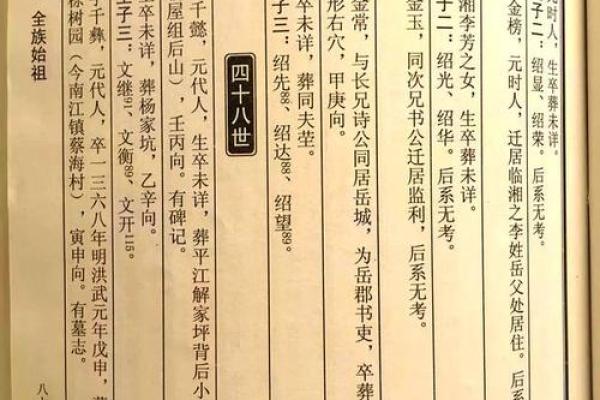 元时人，生卒葬未详。
子二：绍显、绍荣。后系无考。
金榜，元时人，迁居临湘之李姓岳父处居住。后系
湘李芳之女，生卒葬未详。
子二：绍光、绍华。后系无考。
金玉，同次兄书公迁居监利，后系无考。
金常，与长兄诗公同居岳城，为岳郡书吏，卒葬
形右穴，甲庚向。
未详，葬同夫茔。
子三：绍先88、绍达88、绍望89。
四十八世
千懿，元代人，生卒未详，葬平江解家坪背后小
屋组后山），壬丙向。有碑记。
生卒未详，葬杨家坑，乙辛向。
子三：文继91、文衡89、文开115。
千彝，元代人，卒一三六八年明洪武元年戊申，葬
樹园（今南江镇蔡海村），寅申向。有墓志。
全族始祖
八